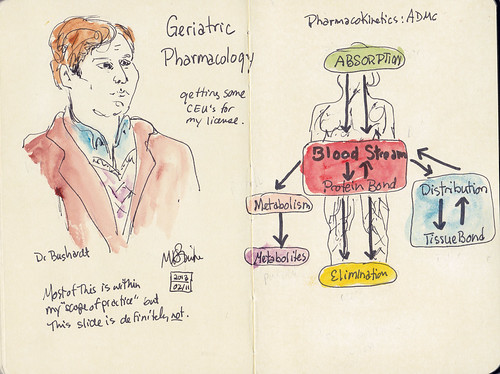 Geriatric
Pharmacology
getting some
CEU's for
my license.
Dr Bushardt
2013
02/11
Most of This is within
my "scope of practice" but
This slide is definitely not.
PharmacoKinetics: ADMC
ABSORPTION
Blood Stream
Protein Bond
Metabolism
Metabolites
Distribution
Tissue Bond
Elimination